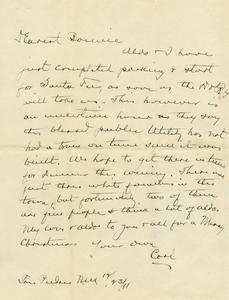 Dearest Bonnie
Aldo & I have
just completed packing & start
for Santa Fe, as soon as the D&RG Ry
will take us. This however is
an uncertain hour as they say
this blessed public Utility has not
had a train on time since it was
built. We hope to get there in time
for dinner this evening. There are
just three white families in this
town, but fortunately two of them
are fine people & think a lot of aldo.
My love & aldo to you & all for a Merry
Christmas Your own
Carl